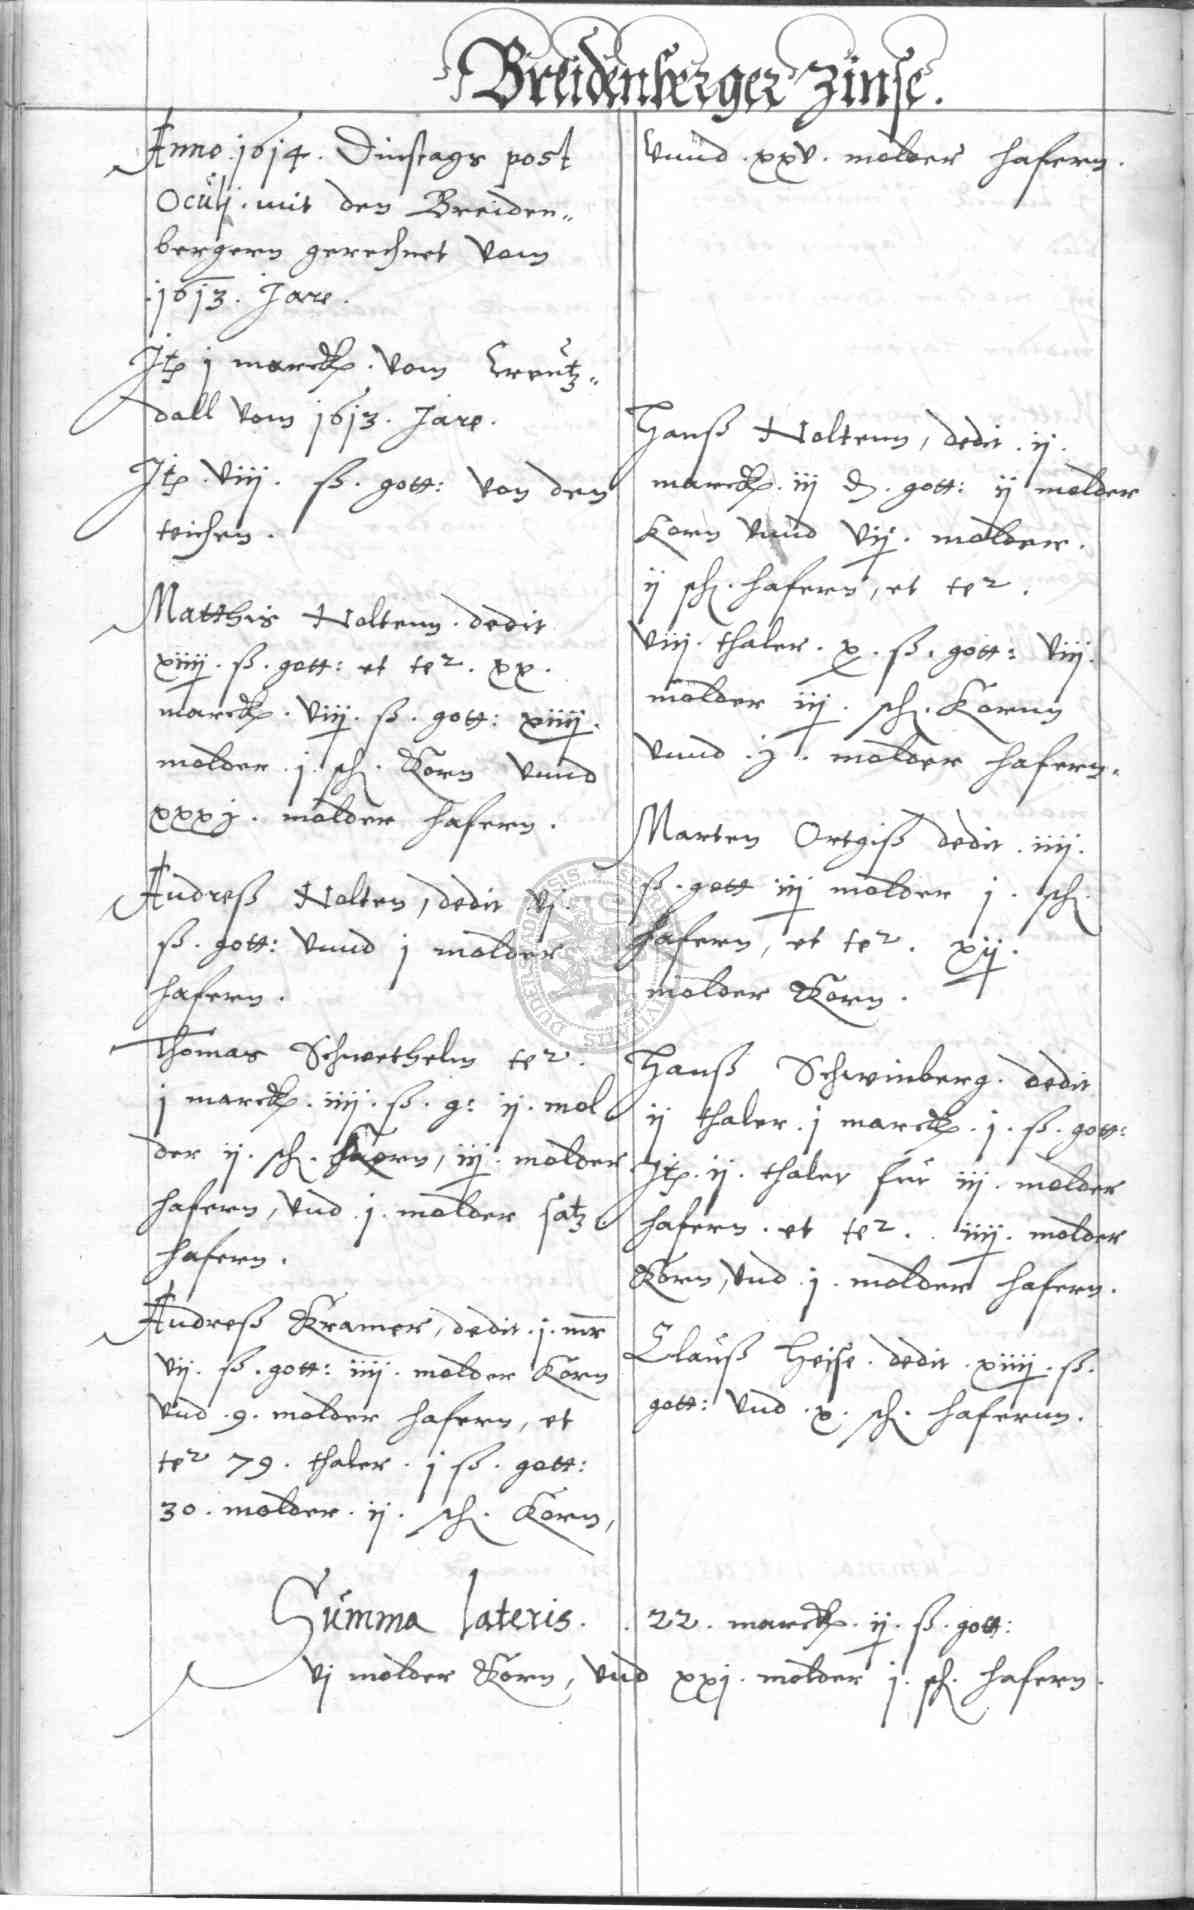 Breidenberger zinse.
Anno .1614. Dinstags post
Oculj. mit den Breiden„
bergern gerechnet vom
.1613. Jare.
Jtp j marck. vom Creutz„
dall vom 1613. Jare.
Jtp. viij. ß. gott: von den
teichen.
Matthis Noltenn. dedit
xiiij. ß. gott: et te2. xx.
marck. viij. ß. gott: xiiij.
molder .j. sch. Korn vnnd
xxxj. molder hafern.
Andreß Nolten, dedit vj.
ß. gott: vnnd j molder
hafern.
Thomas Schwethelm te2.
j marck. iiij. ß. g: ij. mol
der ij. sch. Korn, iij. molder
hafern, vnd .j. molder satz
hafern.
Andreß Kramer, dedit .j. mr
vij. ß. gott: iiij. molder Korn
vnd .9. molder hafern, et
te2 79. thaler. j ß. gott:
30. molder. ij. sch. Korn,
vnnd .xxv. molder hafern.
Hanß Noltenn, dedit .ij.
marck. iij d. gott: ij molder
Korn vnnd vij. molder.
ij sch. hafern, et te2.
viij. thaler. x. ß. gott: viij.
molder iij. sch. Kornn
vnnd .j. molder hafern.
Marten Ortgiß dedit .iiij.
ß. gott iij molder j. sch.
hafern, et te2. xij.
molder Korn.
Hanß Schwinberg. dedit
ij thaler. j marck. j. ß. gott:
Jtp. ij. thaler für iij. molder
hafern. et te2. . iiij. molder
Korn, vnd .j. molder hafern.
Clauß Heise. dedit .xiiij. ß.
gott: vnd .x. sch. hafernn.
Summa lateris. . 22. marck. ij. ß. gott:
vj molder Korn, vnd xxj. molder j. sch. hafern.